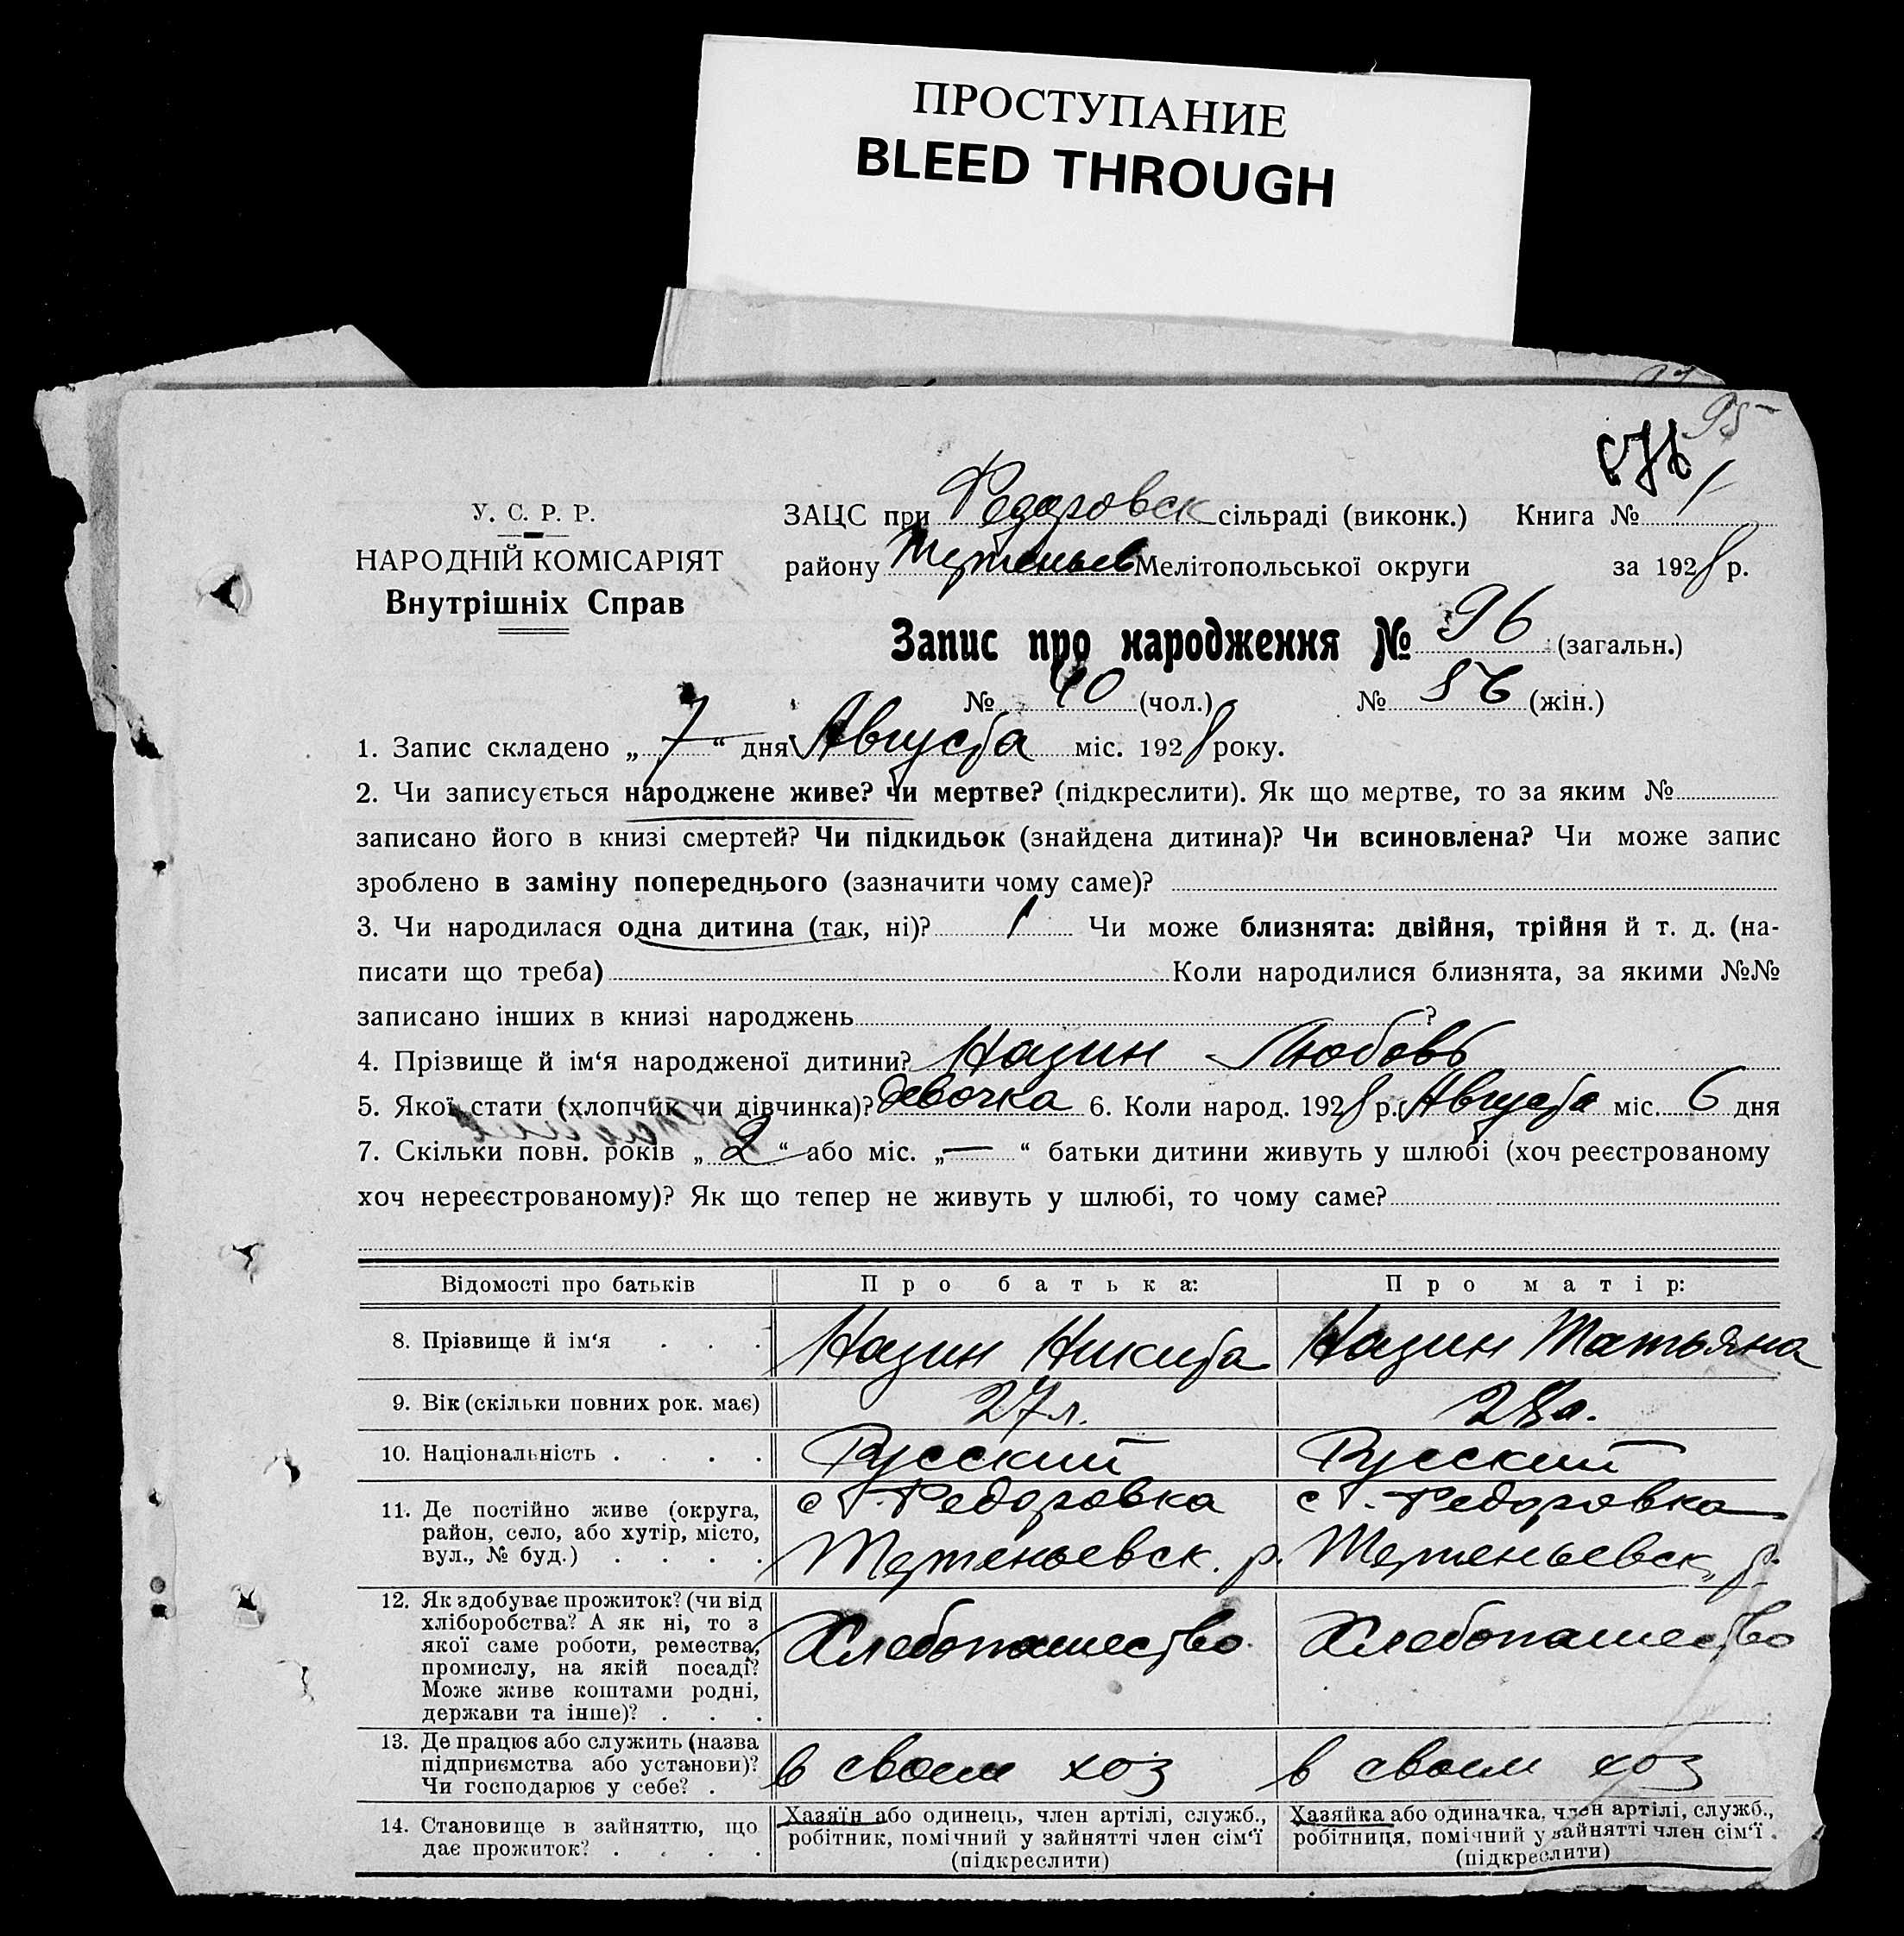 ПРОСТУПАНИЕ
BLEED THROUGH
95
У. С. Р. Р.
НАРОДНІЙ КОМІСАРІЯТ
Внутрішніх Справ
ЗАЦС при Федоровск сільраді (виконк.) Книга № 1
району Мелітопольської округи за 1928 р.
Запис про народження № 96 (загальн.)
№ 40 (чол.) № 56 (жін.)
1. Запис складено „ 7 “ дня Августа міс. 1928 року.
2. Чи записується народжене живе? чи мертве? (підкреслити). Як що мертве, то за яким №
записано його в книзі смертей? Чи підкидьок (знайдена дитина)? Чи всиновлена? Чи може запис
зроблено в заміну попереднього (зазначити чому саме)?
3. Чи народилася одна дитина (так, ні)? 1 Чи може близнята: двійня, трійня й т. д. (на-
писати що треба) Коли народилися близнята, за якими №№
записано інших в книзі народжень ?
4. Прізвище й ім‘я народженої дитини? Назин Любовь
5. Якої стати (хлопчик чи дівчинка)? девочка 6. Коли народ. 1928 р. Августа міс. 6 дня
7. Скільки повн. років „ 2 “ або міс. „ — “ батьки дитини живуть у шлюбі (хоч реєстрованому
хоч нереєстрованому)? Як що тепер не живуть у шлюбі, то чому саме?
Відомості про батьків Про батька: Про матір:
8. Прізвище й ім‘я . . . Назин Никита Назин Татьяна
9. Вік (скільки повних рок. має) 27 л. 28 л.
10. Національність . . . . Русский Русский
11. Де постійно живе (округа,
район, село, або хутір, місто,
вул., № буд.) . . . .
с. Федоровка
р.
с. Федоровка
р.
12. Як здобуває прожиток? (чи від
хліборобства? А як ні, то з
якої саме роботи, ремества,
промислу, на якій посаді?
Може живе коштами родні,
держави та інше)? . . .
Хлебопашество Хлебопашество
13. Де працює або служить (назва
підприємства або установи)?
Чи господарює у себе? .
в своем хоз в своем хоз
14. Становище в зайняттю, що
дає прожиток? . . . .
Хазяїн або одинець, член артілі, служб.,
робітник, помічний у зайнятті член сім‘ї
(підкреслити)
Хазяйка або одиначка, член артілі, служб.,
робітниця, помічний у зайнятті член сім‘ї
(підкреслити)